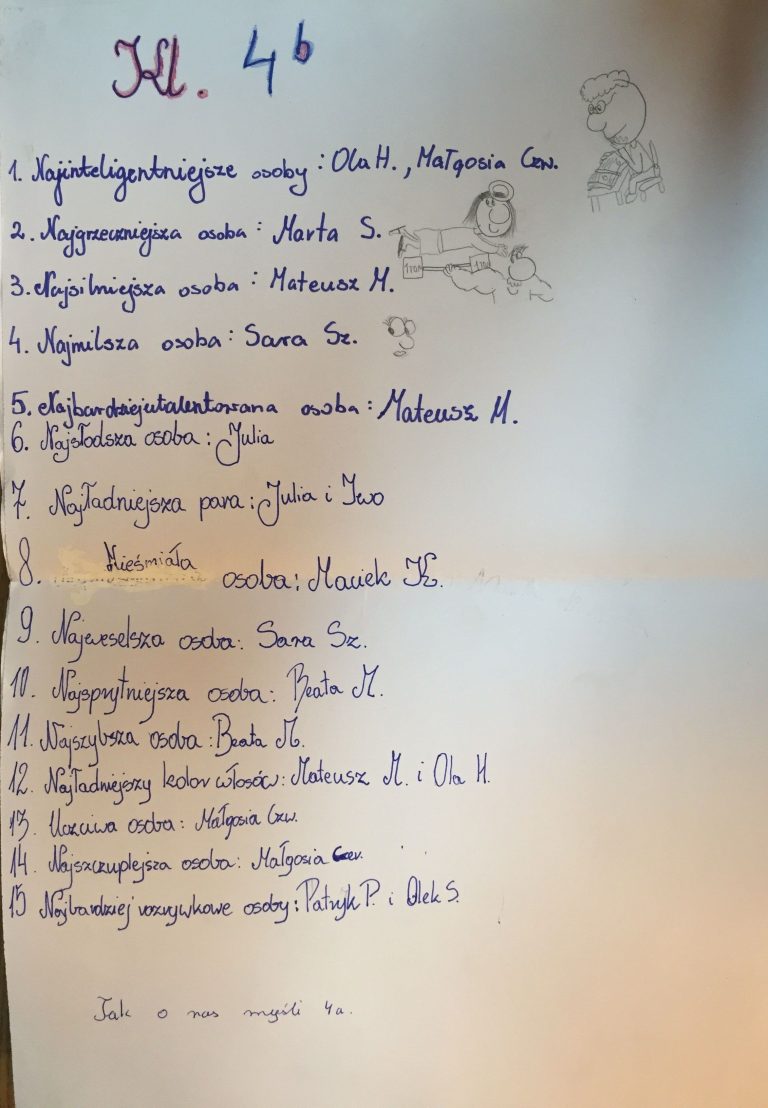 Kl. 4b
1. Najinteligentniejsze osoby: Ola H., Małgosia Czw.
2. Najgrzeczniejsza osoba: Marta S.
1TON 1TON
3. Najsilniejsza osoba: Mateusz M.
4. Najmilsza osoba: Sara Sz.
5. Najbardziejutalentowana osoba: Mateusz M.
6. Najsłodsza osoba: Julia
7. Najładniejsza para: Julia i Iwo
8. Nieśmiała osoba: Maciek K.
9. Najweselsza osoba: Sara Sz.
10. Najsprytniejsza osoba: Beata M.
11. Najszybsza osoba: Beata M.
12. Najładniejszy kolor włosów: Mateusz M. i Ola H.
13. Uczciwa osoba: Małgosia Czw.
14. Najszczuplejsza osoba: Małgosia
15 Najbardziej rozrywkowe osoby: Patryk P. i Olek S.
Tak o nas myśli 4a.